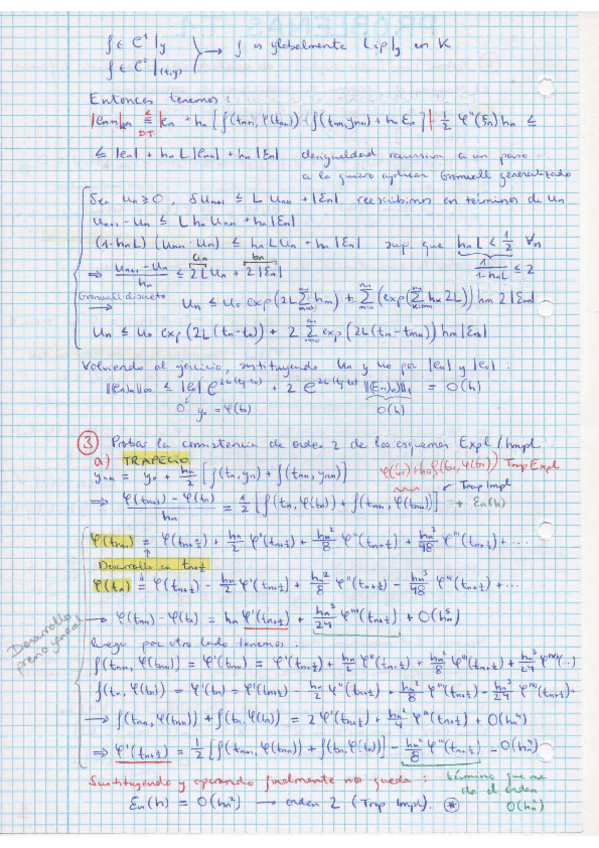 f ∈ C¹|y
f ∈ C⁰|(t,y) } → f es globalmente Lip|y en K
Entonces tenemos:
|en+1| ≤ |en + hn [f(tn+1, φ(tn+1)) - f(tn+1, yn+1) + hn εn]| ½ φ''(ξn) hn ≤
DT
≤ |en| + hn L |en+1| + hn |εn| desigualdad recursiva a un paso
a la quiero aplicar Gronwall generalizado
Sea un ≥ 0, δun+1 ≤ L un+1 + |εn| reescribimos en términos de un
un+1 - un ≤ L hn un+1 + hn |εn|
(1-hnL) (un+1 - un) ≤ hn L un + hn |εn| sup. que hn L < ½ ∀n
⇒ (un+1 - un)/hn ≤ 2L un + 2|εn| an bn 1/(1-hnL) ≤ 2
Gronwall discreto → un ≤ u0 exp(2L Σ hm) + Σ (exp(Σ hk 2L)) hm 2|εm|
un ≤ u0 exp(2L(tn-t0)) + 2 Σ exp(2L(tn-tm+1)) hm |εm|
Volviendo al ejercicio, sustituyendo un y u0 por |en| y |e0|:
‖(en)n‖∞ ≤ |e0| e^2L(tf-t0) + 2 e^2L(tf-t0) ‖(εn)n‖₁ = O(h)
0 y0 = φ(t0) O(h)
③ Probar la consistencia de orden 2 de los esquemas Expl/Impl.
a) TRAPECIO
φ(tn)+hn f(tn, φ(tn)) Trap Expl
yn+1 = yn + hn/2 [f(tn, yn) + f(tn+1, yn+1)]
Trap Impl
⇒ (φ(tn+1) - φ(tn))/hn = 1/2 [f(tn, φ(tn)) + f(tn+1, φ(tn+1))] + εn(h)
φ(tn+1) = φ(tn+½) + hn/2 φ'(tn+½) + hn²/8 φ''(tn+½) + hn³/48 φ'''(tn+½) + ...
Desarrollo en tn+½
φ(tn) = φ(tn+½) - hn/2 φ'(tn+½) + hn²/8 φ''(tn+½) - hn³/48 φ'''(tn+½) + ...
→ φ(tn+1) - φ(tn) = hn φ'(tn+½) + hn³/24 φ'''(tn+½) + O(hn⁵)
Desarrollo previo general
luego por otro lado tenemos:
f(tn+1, φ(tn+1)) = φ'(tn+1) = φ'(tn+½) + hn/2 φ''(tn+½) + hn²/8 φ'''(tn+½) + hn³/24 φ^IV(..)
f(tn, φ(tn)) = φ'(tn) = φ'(tn+½) - hn/2 φ''(tn+½) + hn²/8 φ'''(tn+½) - hn³/24 φ^IV(tn+½)+
→ f(tn+1, φ(tn+1)) + f(tn, φ(tn)) = 2φ'(tn+½) + hn²/4 φ'''(tn+½) + O(hn⁴)
⇒ φ'(tn+½) = 1/2 [f(tn+1, φ(tn+1)) + f(tn, φ(tn))] - hn²/8 φ'''(tn+½) - O(hn⁴)
Sustituyendo y operando finalmente nos queda: término que me da el orden
εn(h) = O(hn²) → orden 2 (Trap Impl). ⊛ O(hn²)